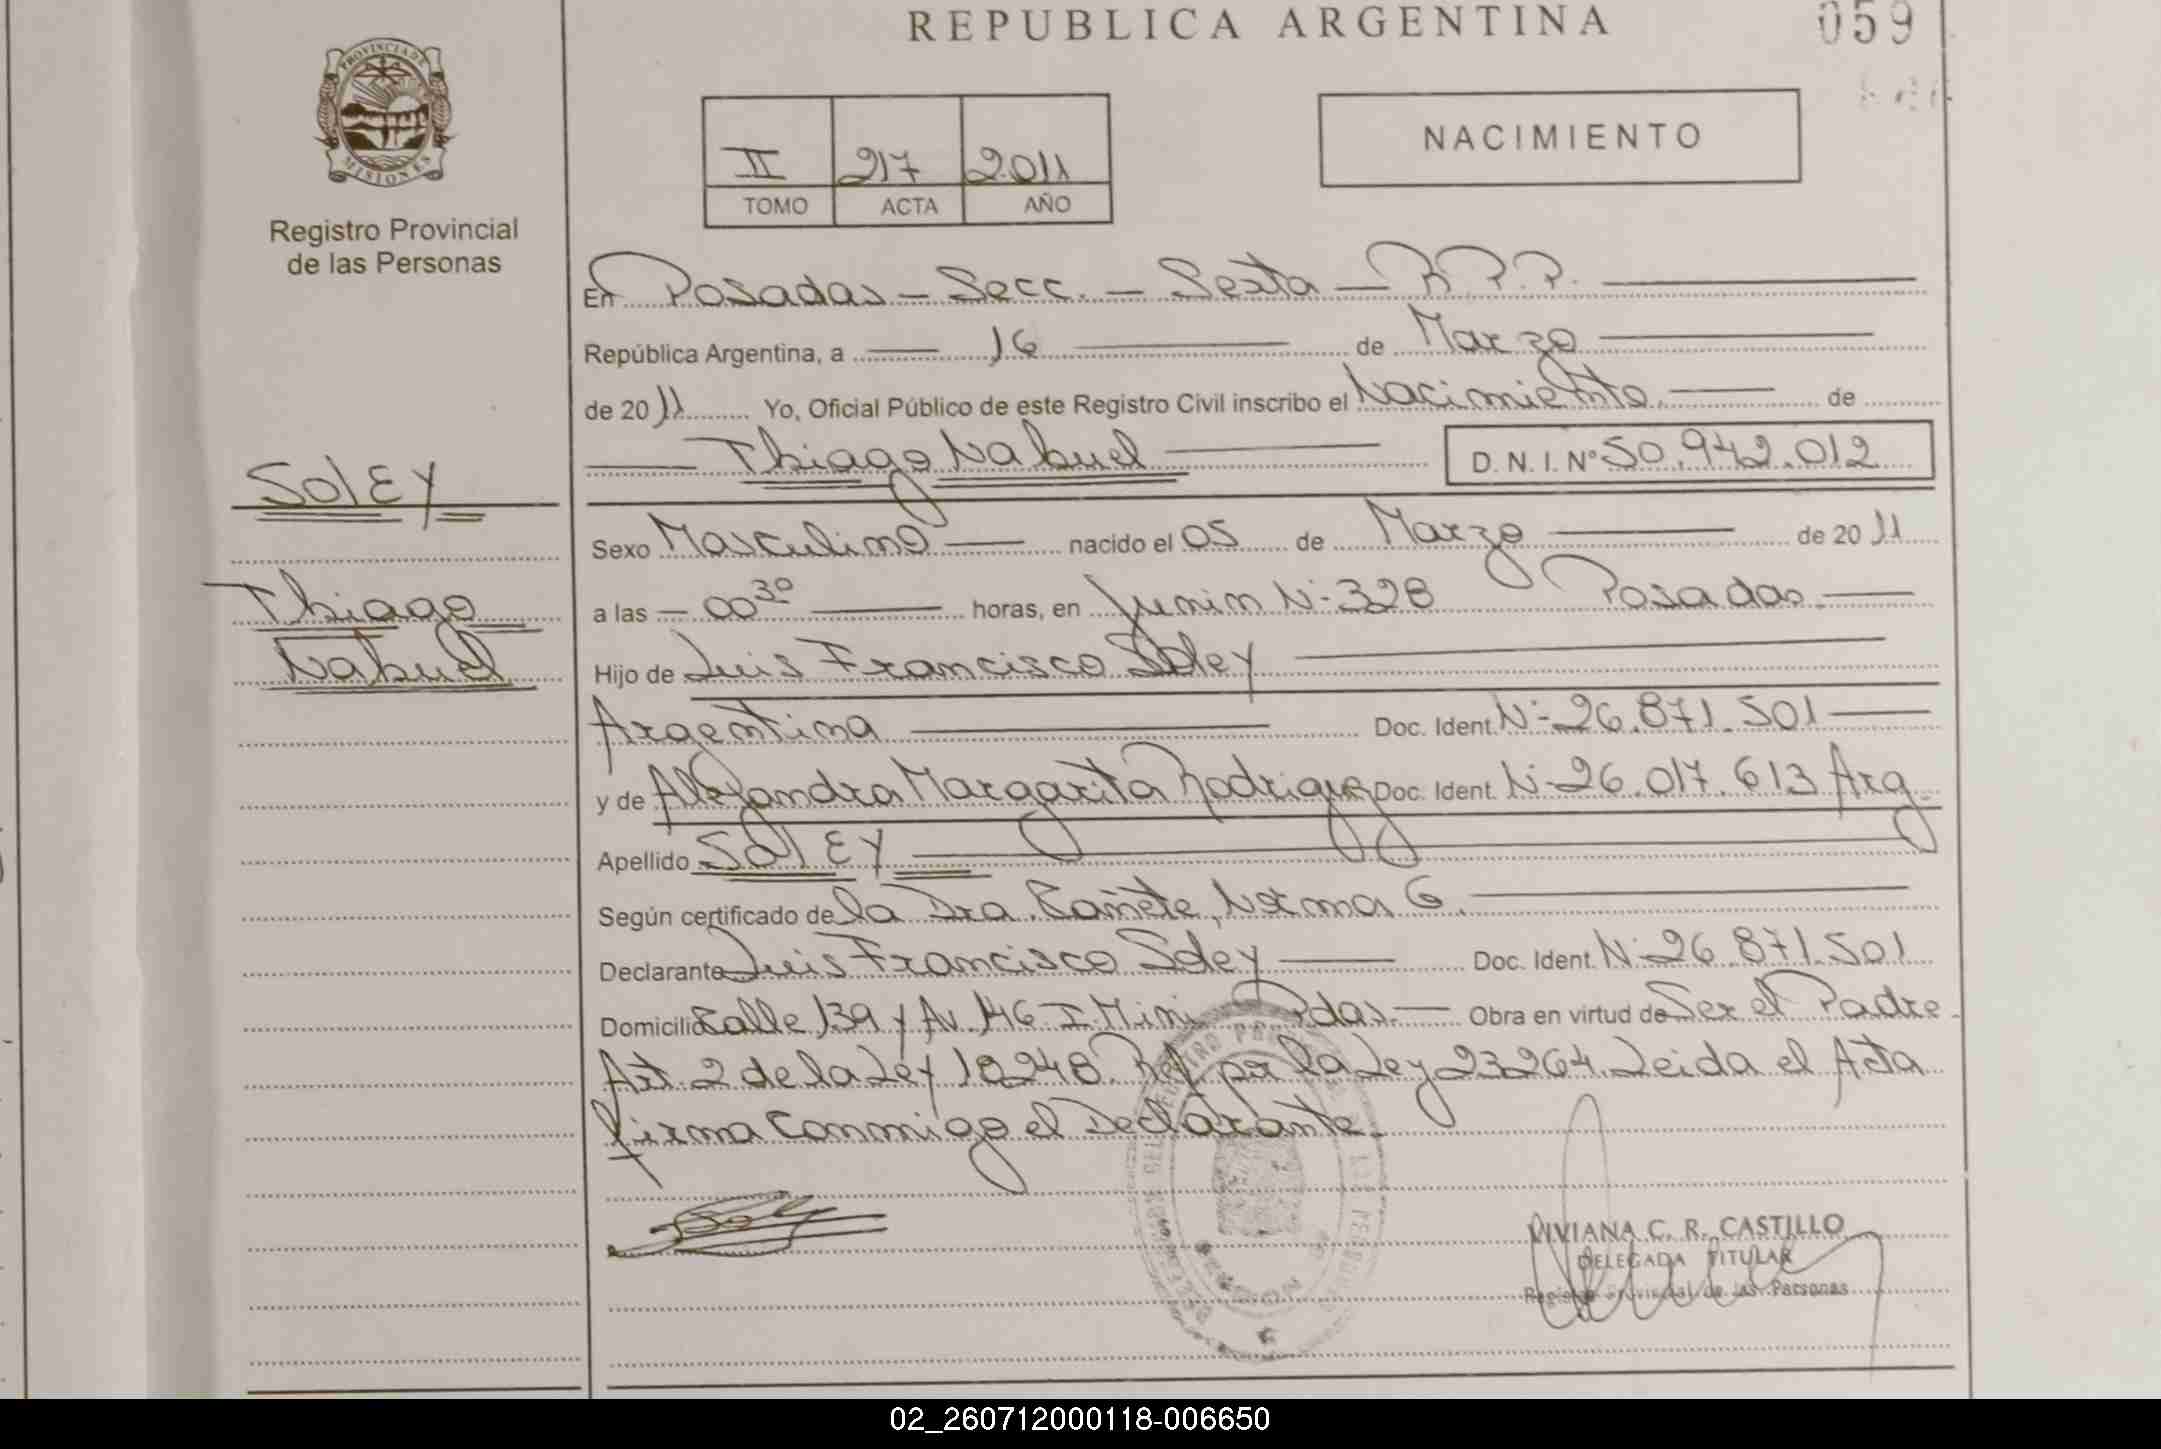 REPUBLICA ARGENTINA
059
PROVINCIA DE
MISIONES
Registro Provincial
de las Personas
II 217 2011
TOMO ACTA AÑO
NACIMIENTO
En Posadas - Secc. - Sexta - R.P.P.
República Argentina, a 16 de Marzo
de 2011 Yo, Oficial Público de este Registro Civil inscribo el Nacimiento de
Thiago Nahuel D. N. I. Nº 50.942.012
SOLEY
Thiago
Nahuel
Sexo Masculino nacido el 05 de Marzo de 2011
a las 00³⁰ horas, en Junin Nº 328 Posadas.
Hijo de Luis Francisco Soley
Argentina Doc. Ident. Nº 26.871.501
y de Alejandra Margarita Rodriguez Doc. Ident. Nº 26.017.613 Arg.
Apellido SOLEY
Según certificado de la Dra. Cañete, Norma G.
Declarante Luis Francisco Soley Doc. Ident. Nº 26.871.501
Domicilio Calle 139 y Av. 146 I. Mini Pdas. Obra en virtud de Ser el Padre.
Art. 2 de la Ley 18248. Ref. por la Ley 23264. Leida el Acta
firma conmigo el Declarante.
VIVIANA C. R. CASTILLO
DELEGADA TITULAR
Registro Provincial de las Personas
02_260712000118-006650